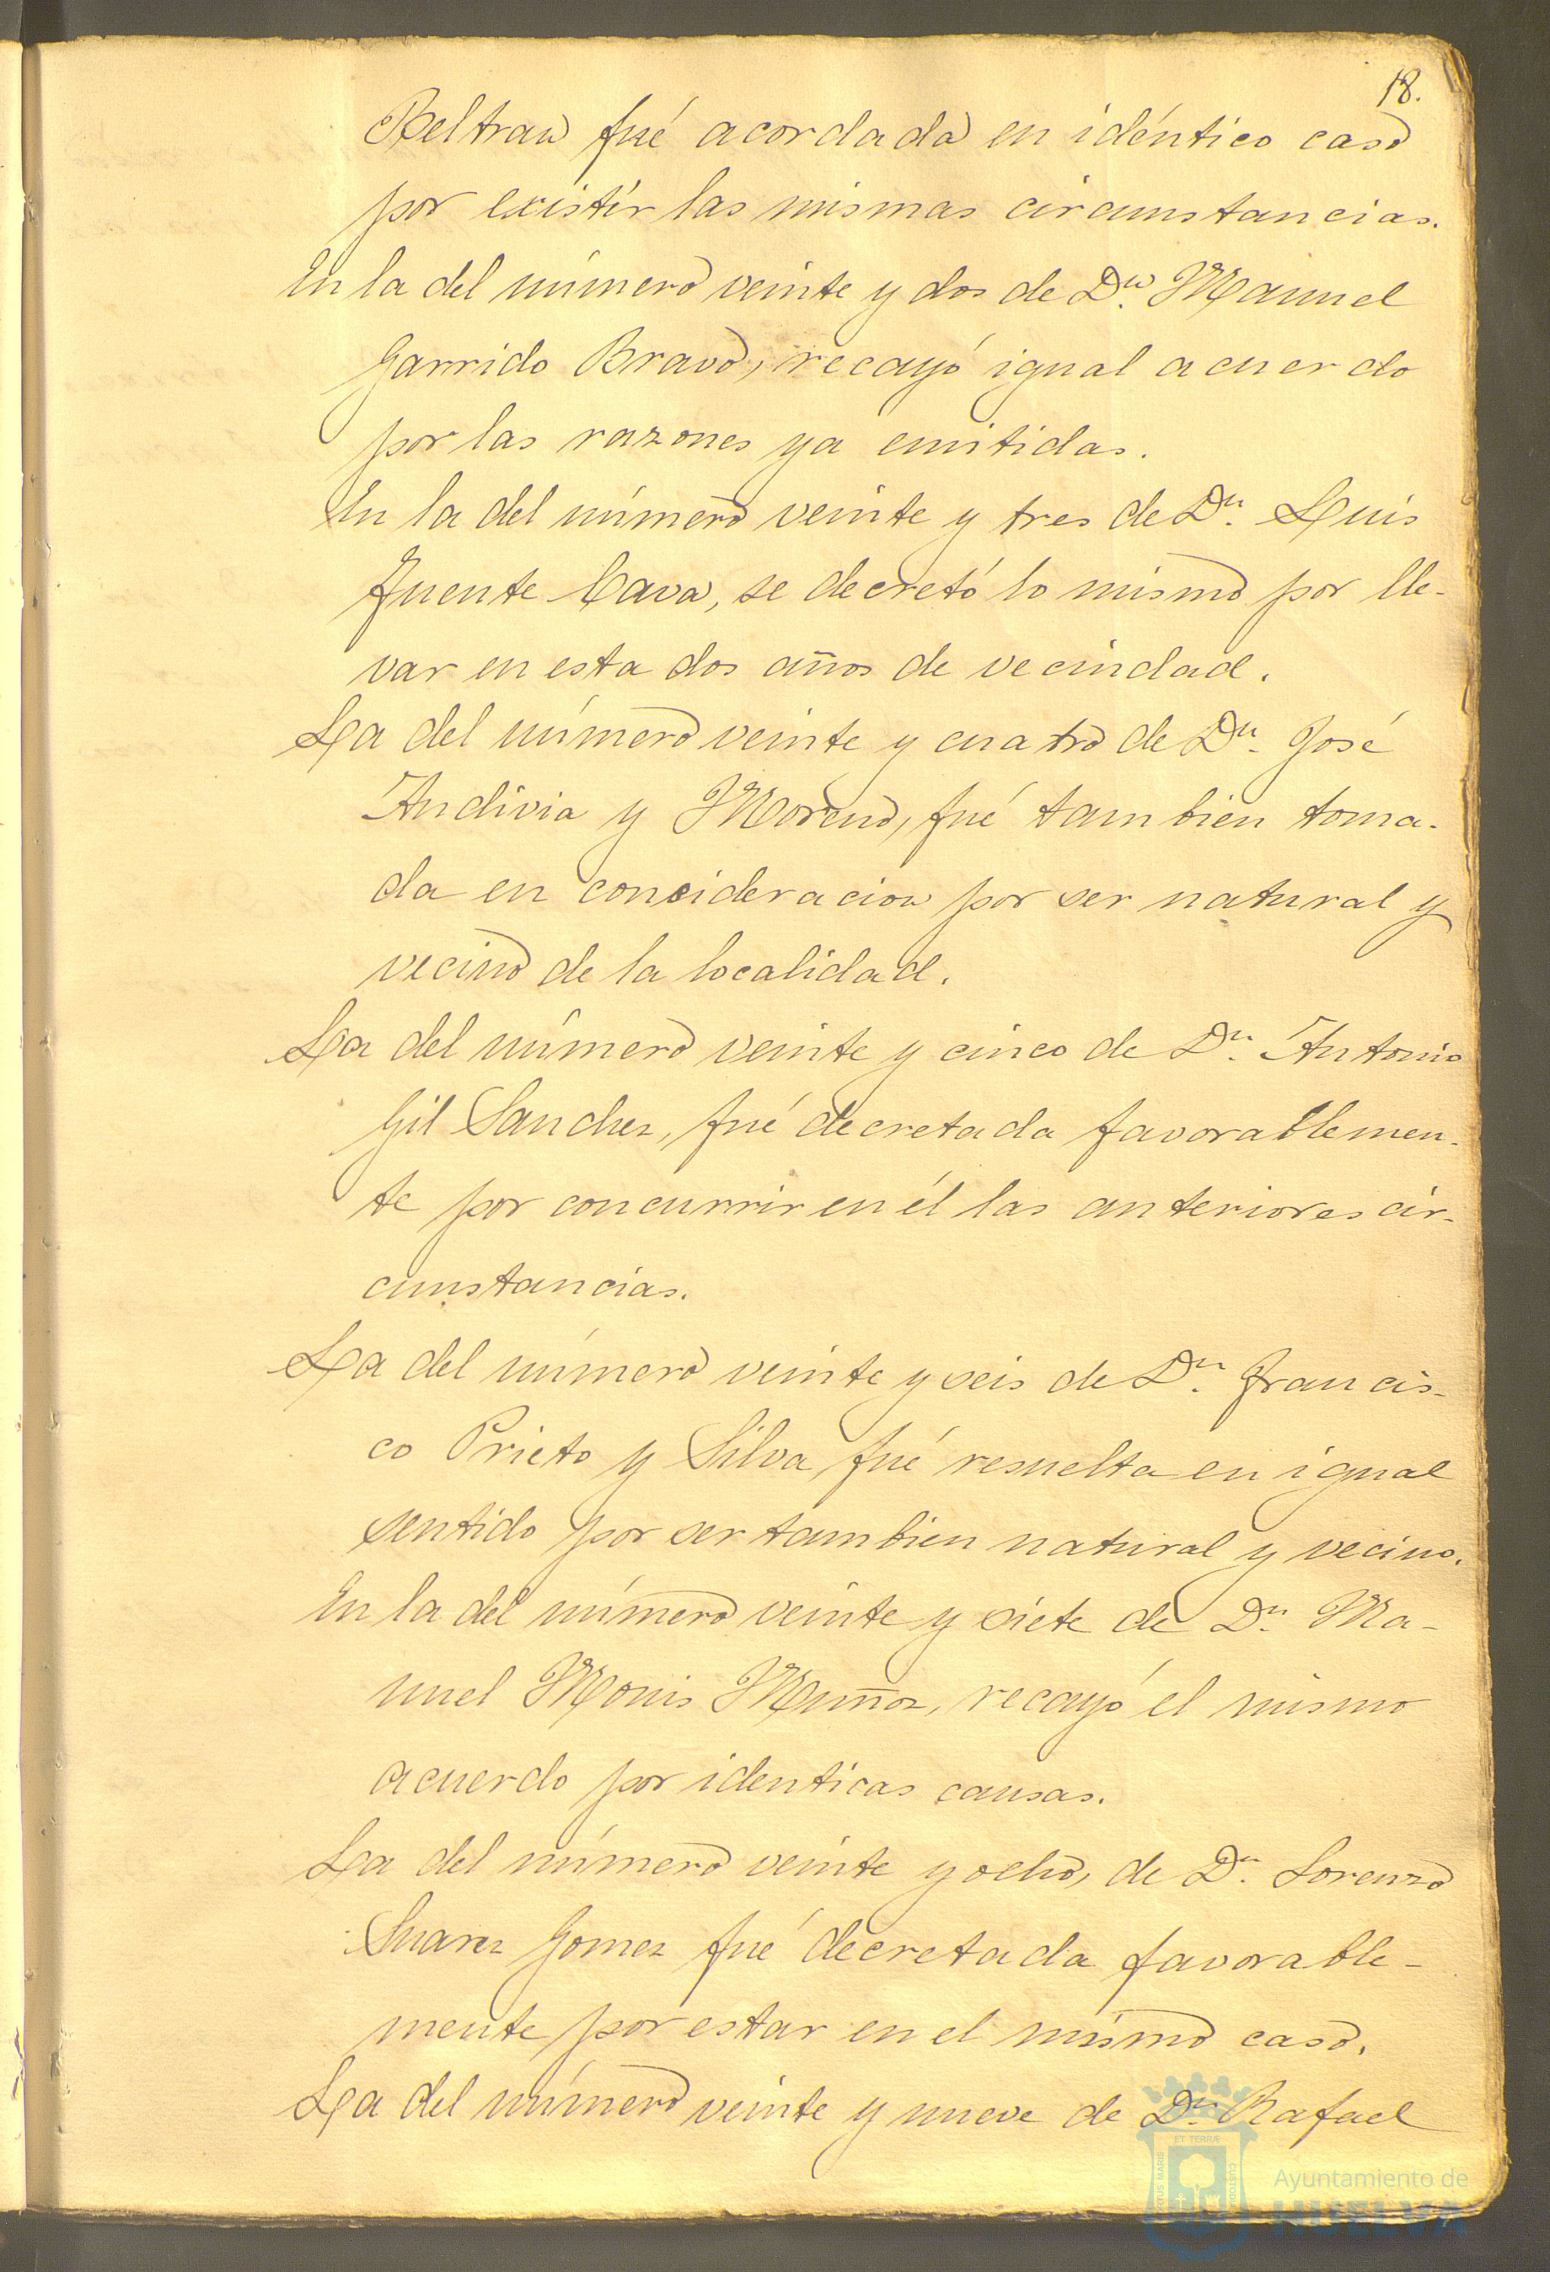 18.
Beltran fué acordada en idéntico caso
por existir las mismas circunstancias.
En la del número veinte y dos de Dn. Manuel
Garrido Bravo, recayó igual acuerdo
por las razones ya emitidas.
En la del número veinte y tres de Dn. Luis
Fuente Cava, se decretó lo mismo por lle-
var en esta dos años de vecindad.
La del número veinte y cuatro de Dn. José
Andivia y Moreno, fué tambien toma-
da en concideracion por ser natural y
vecino de la localidad.
La del número veinte y cinco de Dn. Antonio
Gil Sanchez, fué decretada favorablemen-
te por concurrir en él las anteriores cir-
cunstancias.
La del número veinte y seis de Dn. Francis-
co Prieto y Silva, fué resuelta en igual
sentido por ser tambien natural y vecino.
En la del número veinte y siete de Dn. Ma-
nuel Monis Muñoz, recayó el mismo
acuerdo por identicas causas.
La del número veinte y ocho, de Dn. Lorenzo
Suarez Gomez fué decretada favorable-
mente por estar en el mismo caso.
La del número veinte y nueve de Dn. Rafael
ET TERRÆ
PORTUS MARIS
CUSTODIA
Ayuntamiento de
HUELVA